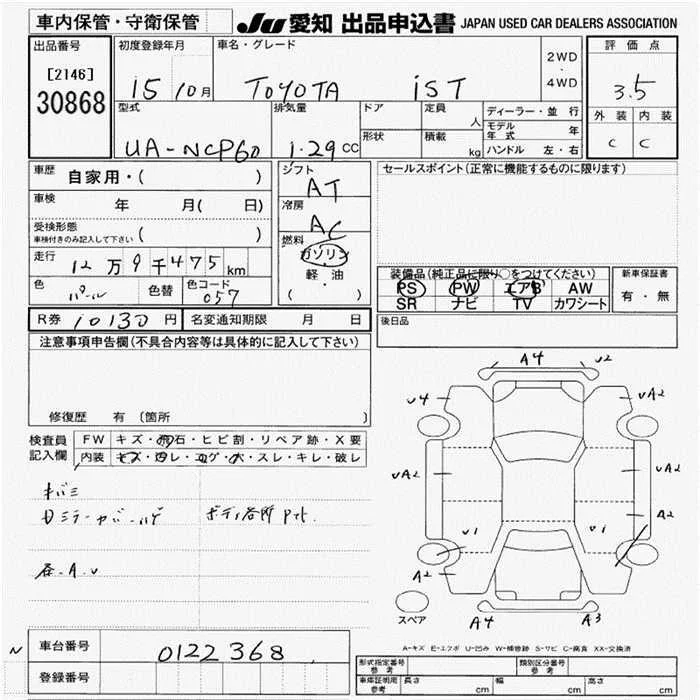 車内保管・守衛保管
JU 愛知 出品申込書 JAPAN USED CAR DEALERS ASSOCIATION
出品番号
[2146]
30868
初度登録年月
15 10月
車名・グレード
TOYOTA iST
2WD
・
4WD
評価点
3.5
外装 内装
C C
型式
UA-NCP60
排気量
1.29 CC
ドア
形状
定員 人
積載 kg
ディーラー・並行
モデル年式 年
ハンドル 左・右
車歴 自家用・( )
車検 年 月( 日)
受検形態
車検付きのみ記入して下さい ( )
走行 12万9千475km
色 パール 色替 色コード 057
シフト
AT
冷房
AC
燃料
ガソリン
軽・油
( ・ )
セールスポイント(正常に機能するものに限ります)
装備品(純正品に限り○をつけてください)
PS PW エアB AW
SR ナビ TV カワシート
新車保証書
有・無
後日品
R券 10130円 名変通知期限 月 日
注意事項申告欄(不具合内容等は具体的に記入して下さい)
修復歴 有 (箇所 )
検査員
記入欄
FW キズ・飛石・ヒビ割・リペア跡・X要
内装 キズ・ヨレ・コゲ・穴・スレ・キレ・破レ
A4 U2
U4 UA2
UA2 UA2
A2
U1 U1
A2
A4 A3
スペア
A-キズ E-エクボ U-凹み W-補修跡 S-サビ C-腐食 XX-交換済
N 車台番号 0122368
登録番号
形式指定番号
参考
類別区分番号
参考
車庫証明用
参考
長さ cm 幅 cm 高さ cm